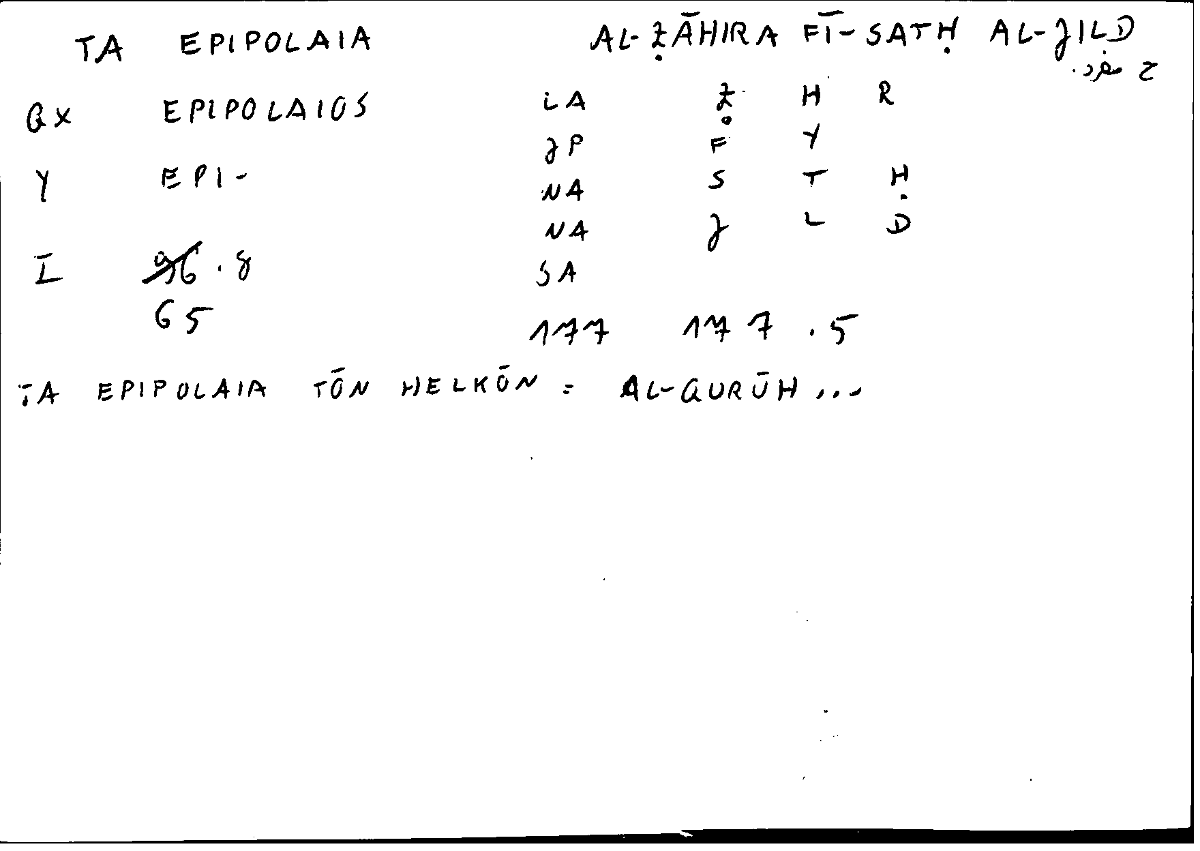 TA EPIPOLAIA AL-ẒĀHIRA FĪ-SATḤ AL-JILD
ح مفرد.
QX EPIPOLAIOS iA Ẓ H R
JP F Y
Y EPI- NA S T Ḥ
NA J L D
I 96.8 SA
65 177 177.5
TA EPIPOLAIA TŌN HELKŌN = AL-QURŪH...